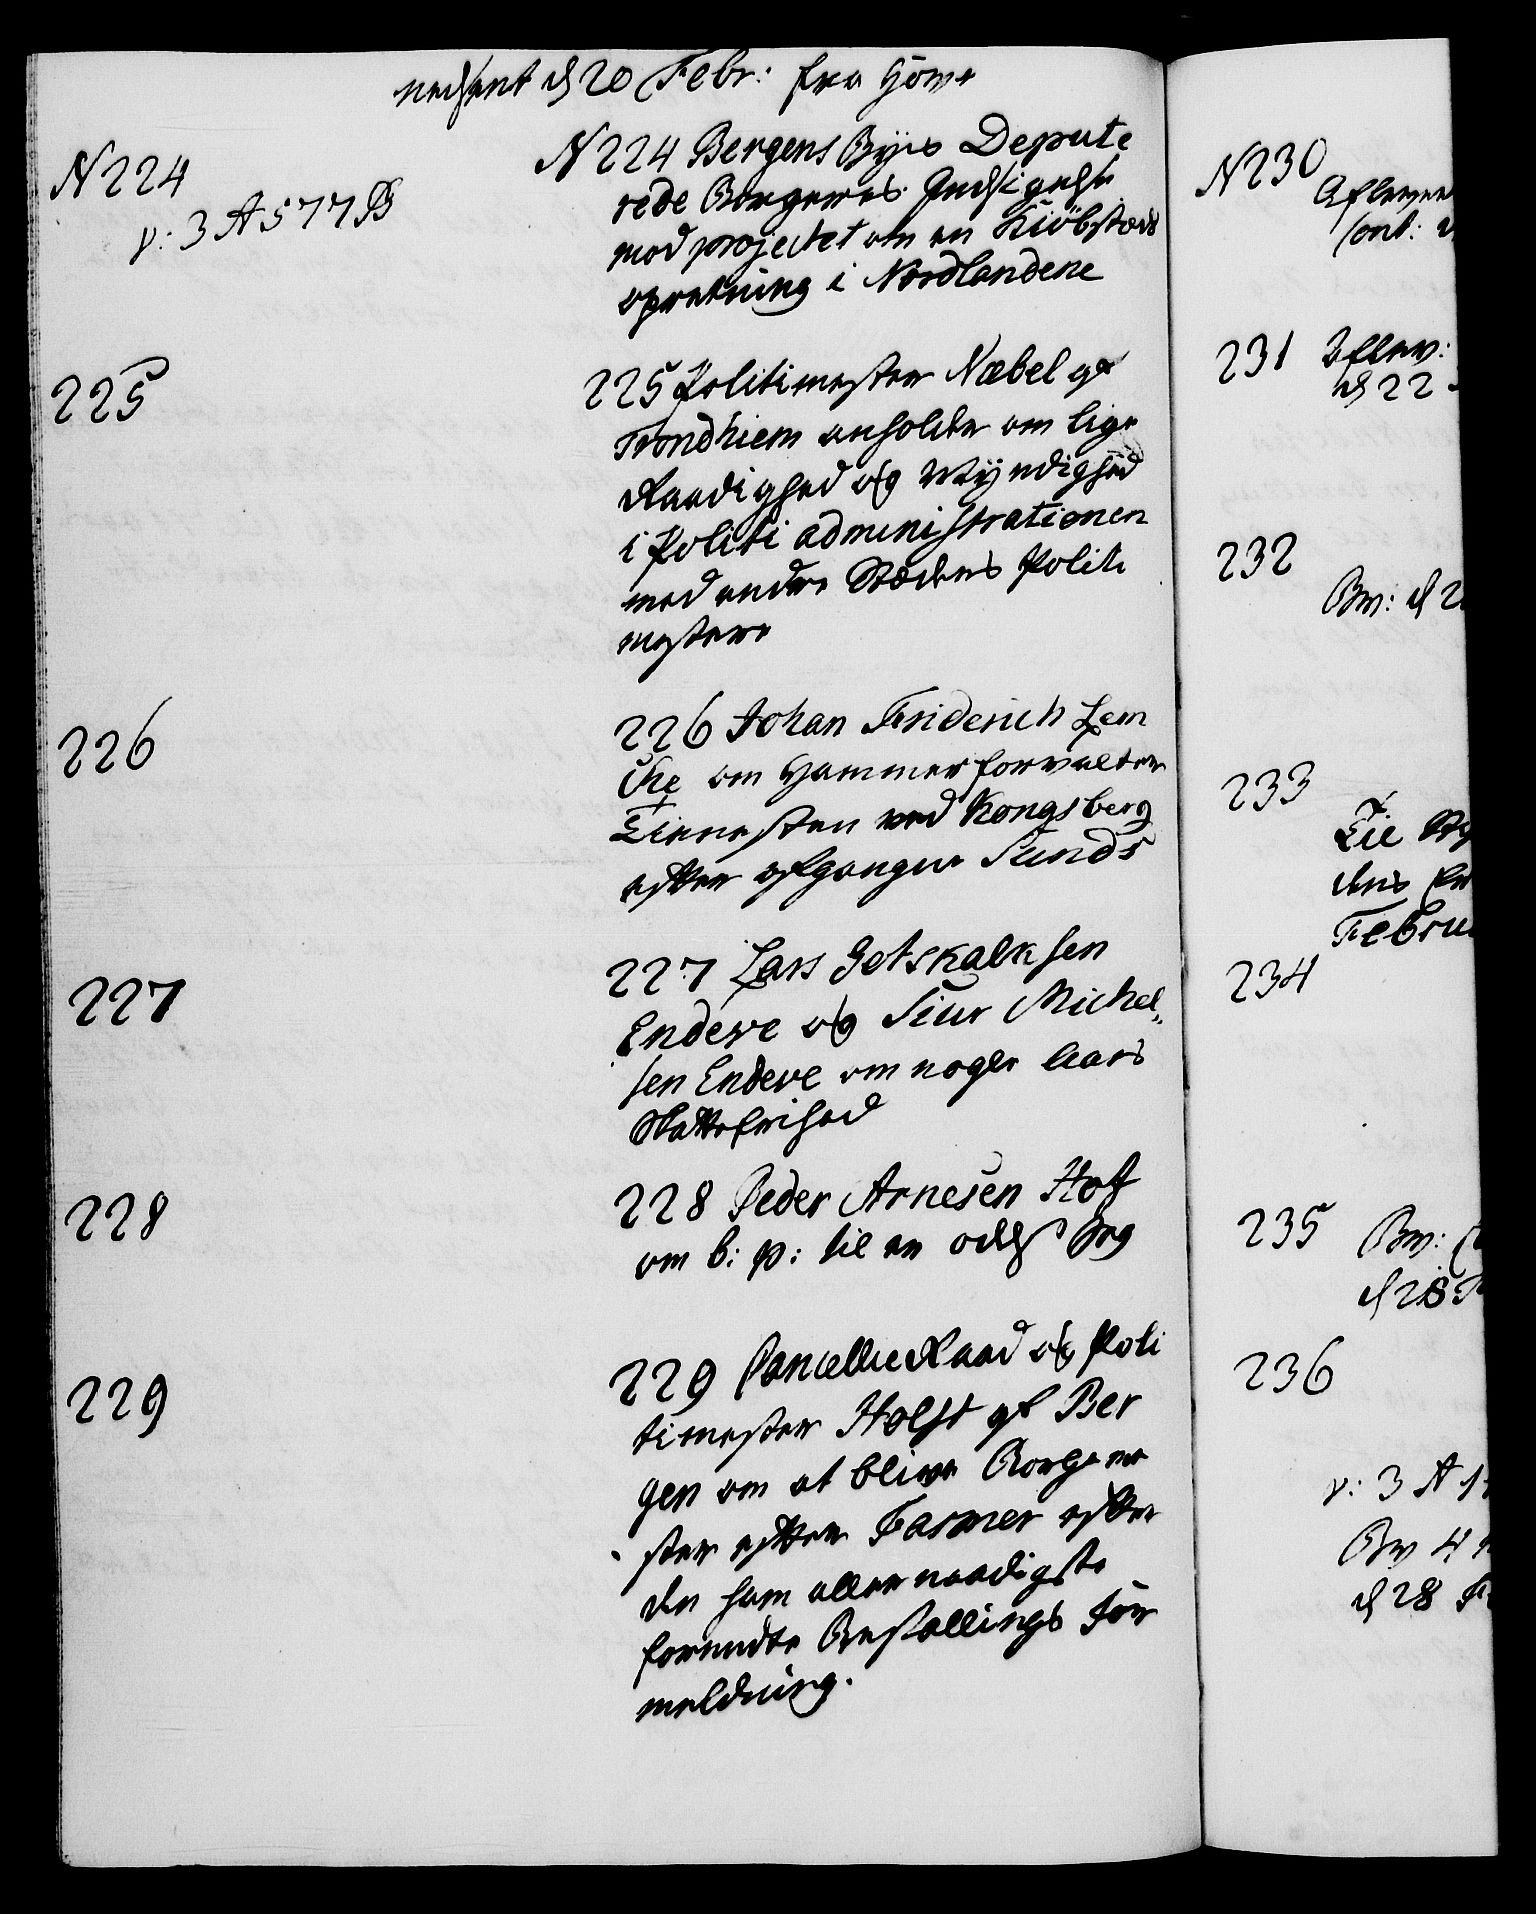 nedsent d 20 Febr: fra Höwe
N 224
v: 3 A 577 B
N 224 Bergens Byis Depute
rede Borgeres Indsigelse
mod projectet om en Kiöbstæds
opretning i Nordlandene
225
225 Politimester Næbel af
Trondhiem anholder om lige
Raadighed og Myndighed
i Politi administrationen
med andre Stæders Politi
mestere
226
226 Johan Friderich Lem
che om Hammerforvalter
Tienesten ved Kongsberg
efter afgangne Sunds
227
227 Lars Getskalksen
Endeve og Siur Michel
sen Endeve om nogle Aars
Skattefrihed
228
228 Peder Arnesen Hof
om b: p: til en odels Sag
229
229 Cancellie Raad og Poli
timester Holst af Ber
gen om at blive Borgeme
ster efter Fasmer efter
den ham allernaadigste
forundte Bestallings For
meldning.
N 230
Afleveret
231 Aflev:
d 22
232
Bev: d 2
233
Lie
dens
Febru
234
235 Bev:
d 28 F
236
v: 3 A
Bev
d 28 F